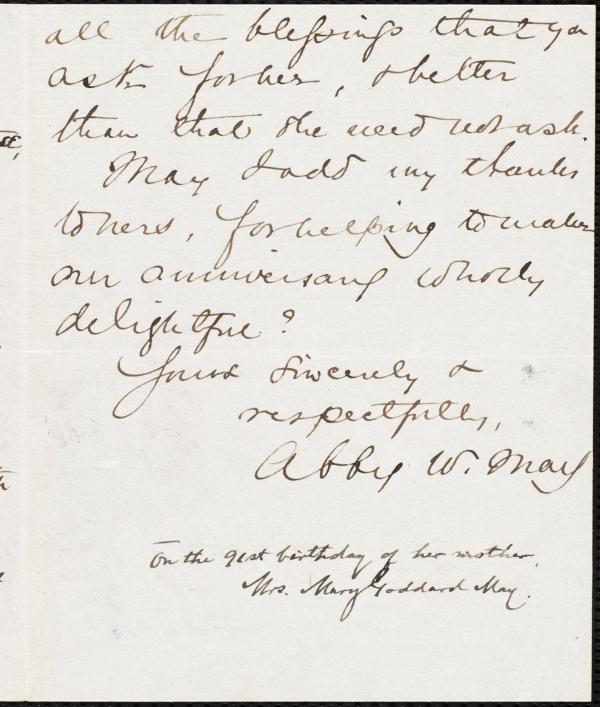 all the blessings that you
ask for her, & better
than that she need not ask.
May I add my thanks
to hers, for helping to make
our anniversary wholly
delightful?
Yours sincerely &
respectfully,
Abby W. May
On the 91st birthday of her mother,
Mrs. Mary Goddard May.